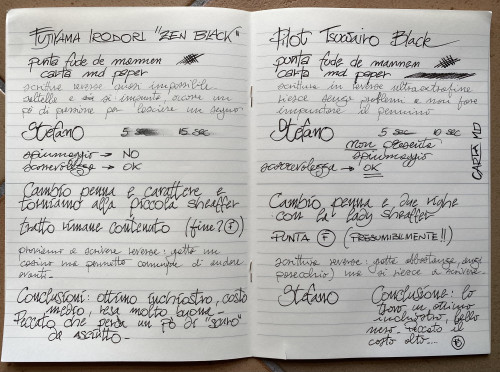 FUJIYAMA IRODORI "ZEN BLACK"
punta fude de mannen
carta md paper
scrittura reverse quasi impossibile
saltella e si impunta, occorre un
pò di pressione per lasciare un segno
Stefano 5 sec 15 sec
spiumaggio → NO
scorrevolezza → OK
Cambio penna e carattere e
torniamo alla piccola sheaffer
tratto rimane contenuto (fine? F)
proviamo a scrivere reverse: gratta un
casino ma permette comunque di andare
avanti.
Conclusioni: ottimo inchiostro, costo
medio, resa molto buona.
Peccato che perda un pò di "scuro"
da asciutto.
Pilot Tsuwairo Black
punta fude de mannen
carta md paper
scrittura in reverse ultraextrafine
riesce senza problemi e non fare
impuntare il pennino
Stefano 5 sec 10 sec
non presenta
spiumaggio
scorrevolezza → OK
CARTA MD
Cambio penna e due righe
con la lady sheaffer
PUNTA F (PRESUMIBILMENTE!!)
scrittura reverse: gratta abbastanza, anzi
parecchio) ma si riesce a scrivere.
Stefano
Conclusione: lo
trovo un ottimo
inchiostro, bello
nero. Peccato il
costo alto....